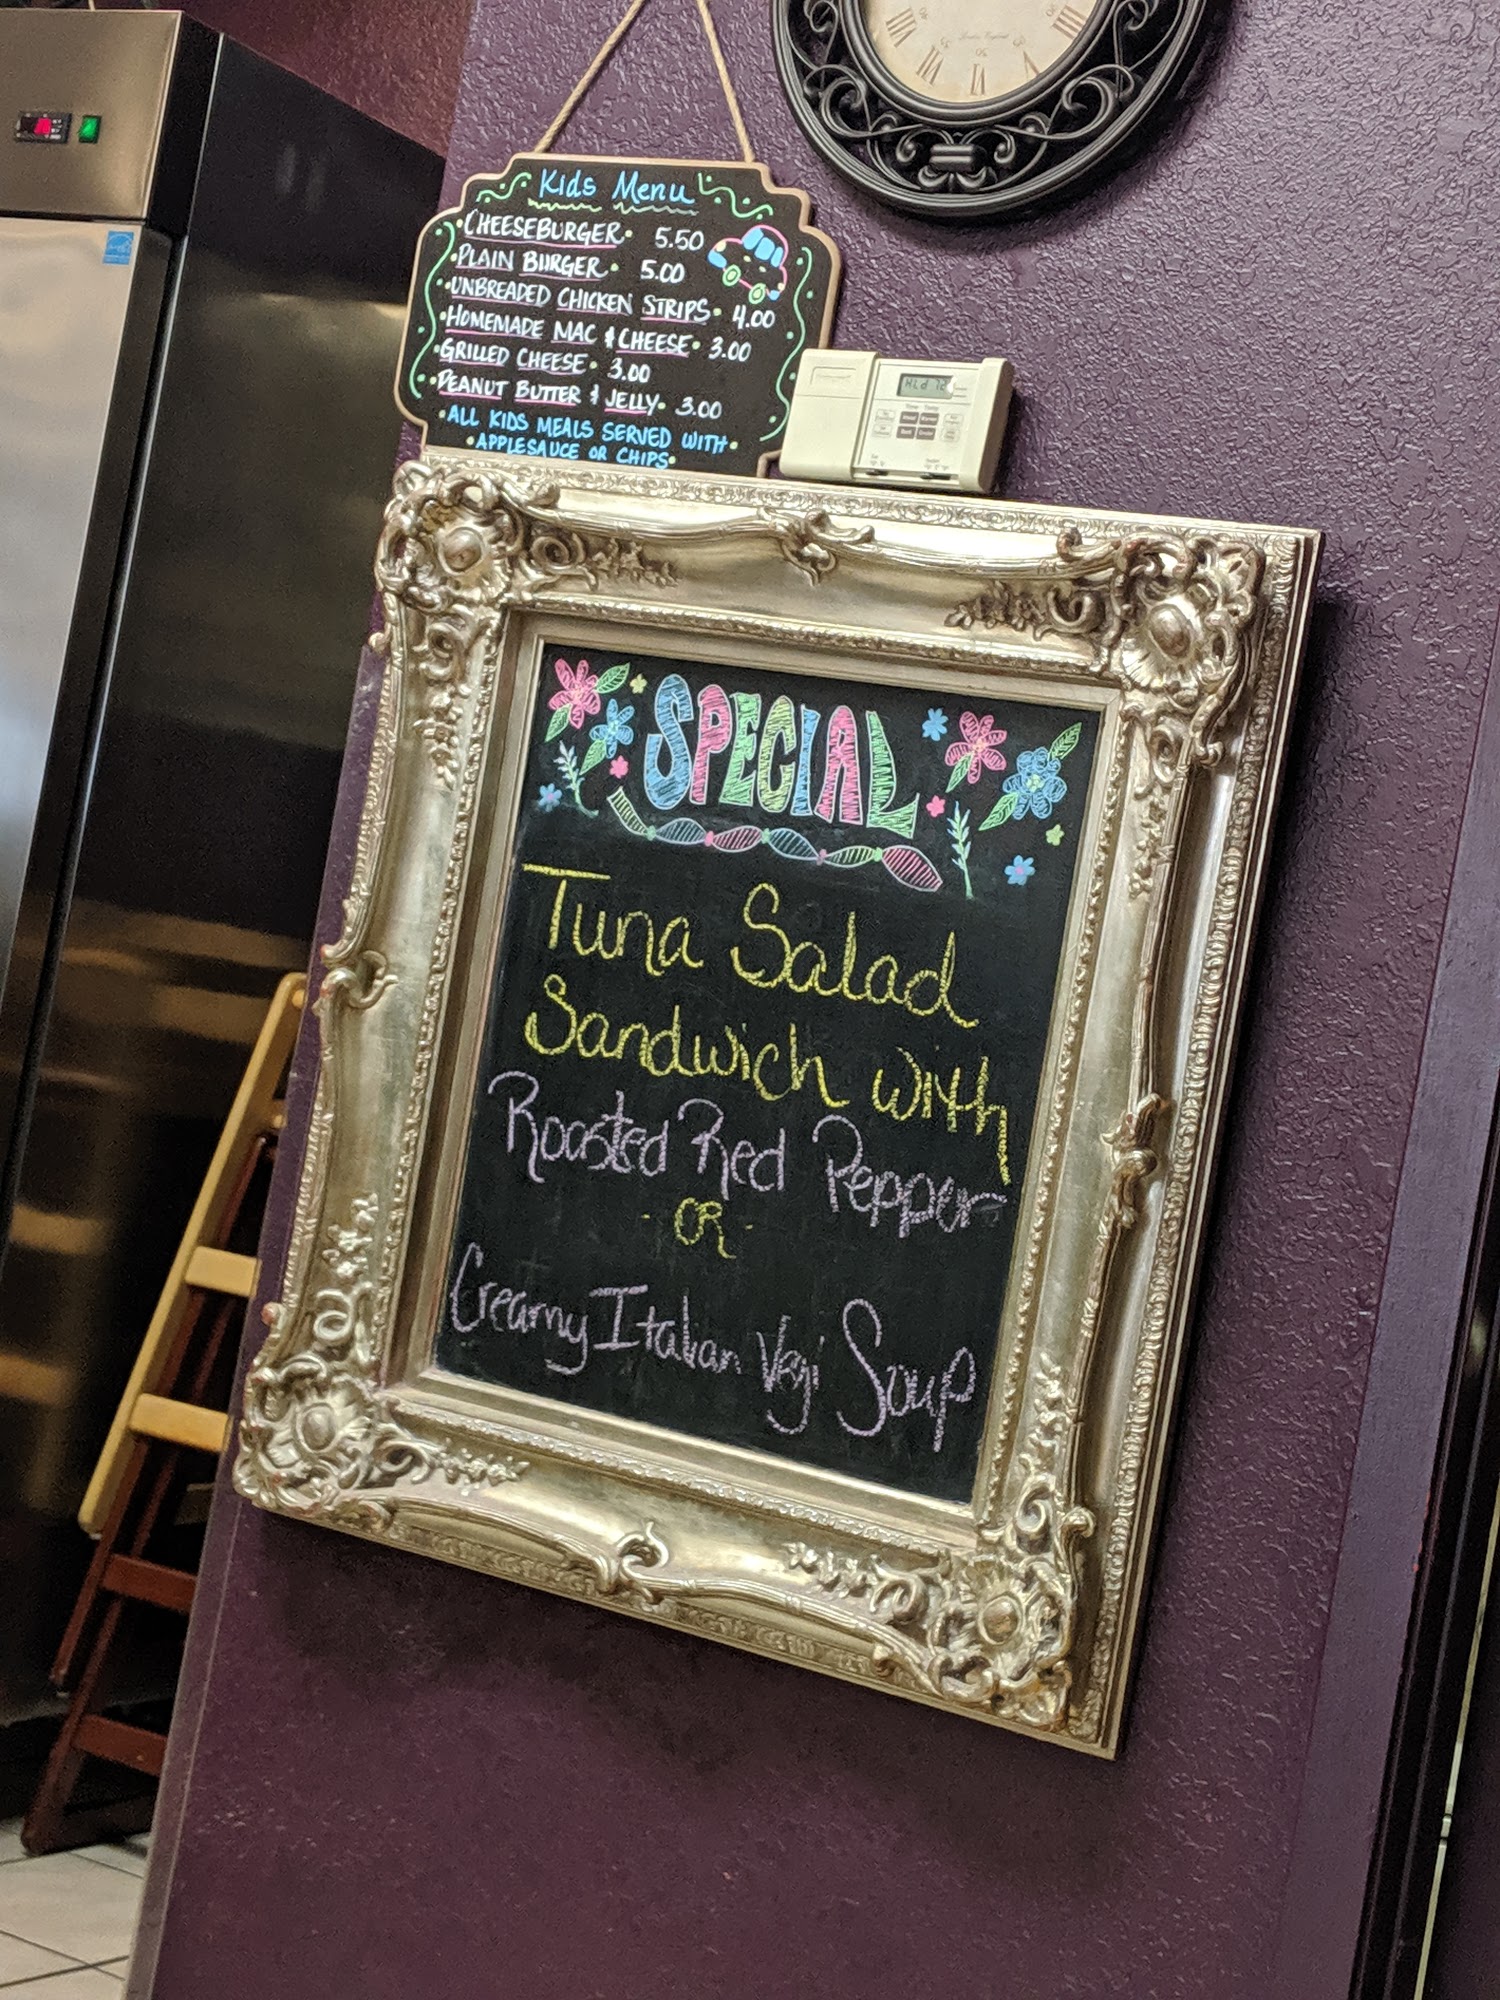 Kids Menu
•CHEESEBURGER• 5.50
•PLAIN BURGER• 5.00
•UNBREADED CHICKEN STRIPS• 4.00
•HOMEMADE MAC & CHEESE• 3.00
•GRILLED CHEESE• 3.00
•PEANUT BUTTER & JELLY• 3.00
•ALL KIDS MEALS SERVED WITH•
•APPLESAUCE OR CHIPS•
SPECIAL
Tuna Salad
Sandwich with
Roasted Red Pepper
- OR -
Creamy Italian Vegi Soup